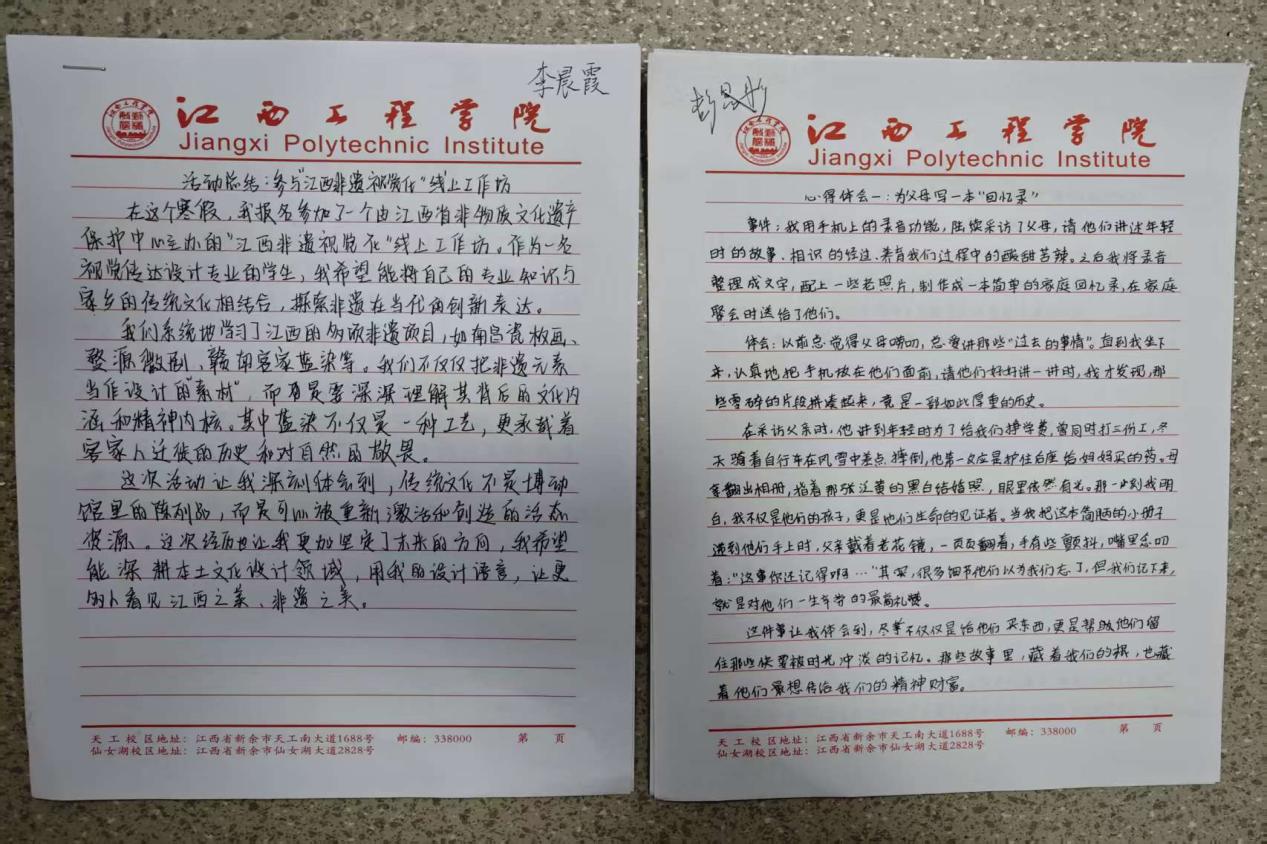 李晨霞
江西工程学院
Jiangxi Polytechnic Institute
活动总结：参与"江西非遗视觉化"线上工作坊
在这个寒假，我报名参加了一个由江西省非物质文化遗产
保护中心主办的"江西非遗视觉化"线上工作坊。作为一名
视觉传达设计专业的学生，我希望能将自己的专业知识与
家乡的传统文化相结合，探索非遗在当代的创新表达。
我们系统地学习了江西的多项非遗项目，如南昌瓷板画、
婺源徽剧、赣南客家蓝染等。我们不仅仅把非遗元素
当作设计的"素材"，而更是要深深理解其背后的文化内
涵和精神内核。其中蓝染不仅是一种工艺，更承载着
客家人迁徙的历史和对自然的敬畏。
这次活动让我深刻体会到，传统文化不是博动
馆里的陈列品，而是可以被重新激活和创造的活态
资源。这次经历也让我更加坚定了未来的方向，我希望
能深耕本土文化设计领域，用我的设计语言，让更
多的人看见江西之美、非遗之美。
天工校区地址：江西省新余市天工南大道1688号 邮编：338000 第 页
仙女湖校区地址：江西省新余市仙女湖大道2828号
彭
江西工程学院
Jiangxi Polytechnic Institute
心得体会一：为父母写一本"回忆录"
事件：我用手机上的录音功能，陆续采访了父母，请他们讲述年轻
时的故事、相识的经过、养育我们过程中的酸甜苦辣。之后我将录音
整理成文字，配上一些老照片，制作成一本简单的家庭回忆录，在家庭
聚会时送给了他们。
体会：以前总觉得父母唠叨，总爱讲那些"过去的事情"。直到我坐下
来，认真地把手机放在他们面前，请他们好好讲一讲时，我才发现，那
些零碎的片段拼凑起来，竟是一部如此厚重的历史。
在采访父亲时，他讲到年轻时为了给我们挣学费，曾同时打三份工，冬
天骑着自行车在风雪中差点摔倒，他第一反应是护住后座给妈妈买的药。母
亲翻出相册，指着那张泛黄的黑白结婚照，眼里依然有光。那一刻我明
白，我不仅是他们的孩子，更是他们生命的见证者。当我把这本简陋的小册子
递到他们手上时，父亲戴着老花镜，一页页翻着，手有些颤抖，嘴里念叨
着："这事你还记得啊…"其实，很多细节他们以为我们忘了，但我们记下来，
就是对他们一生辛劳的最高礼赞。
这件事让我体会到，尽孝不仅仅是给他们买东西，更是帮助他们留
住那些快要被时光冲淡的记忆。那些故事里，藏着我们的根，也藏
着他们最想传给我们的精神财富。
天工校区地址：江西省新余市天工南大道1688号 邮编：338000 第 页
仙女湖校区地址：江西省新余市仙女湖大道2828号